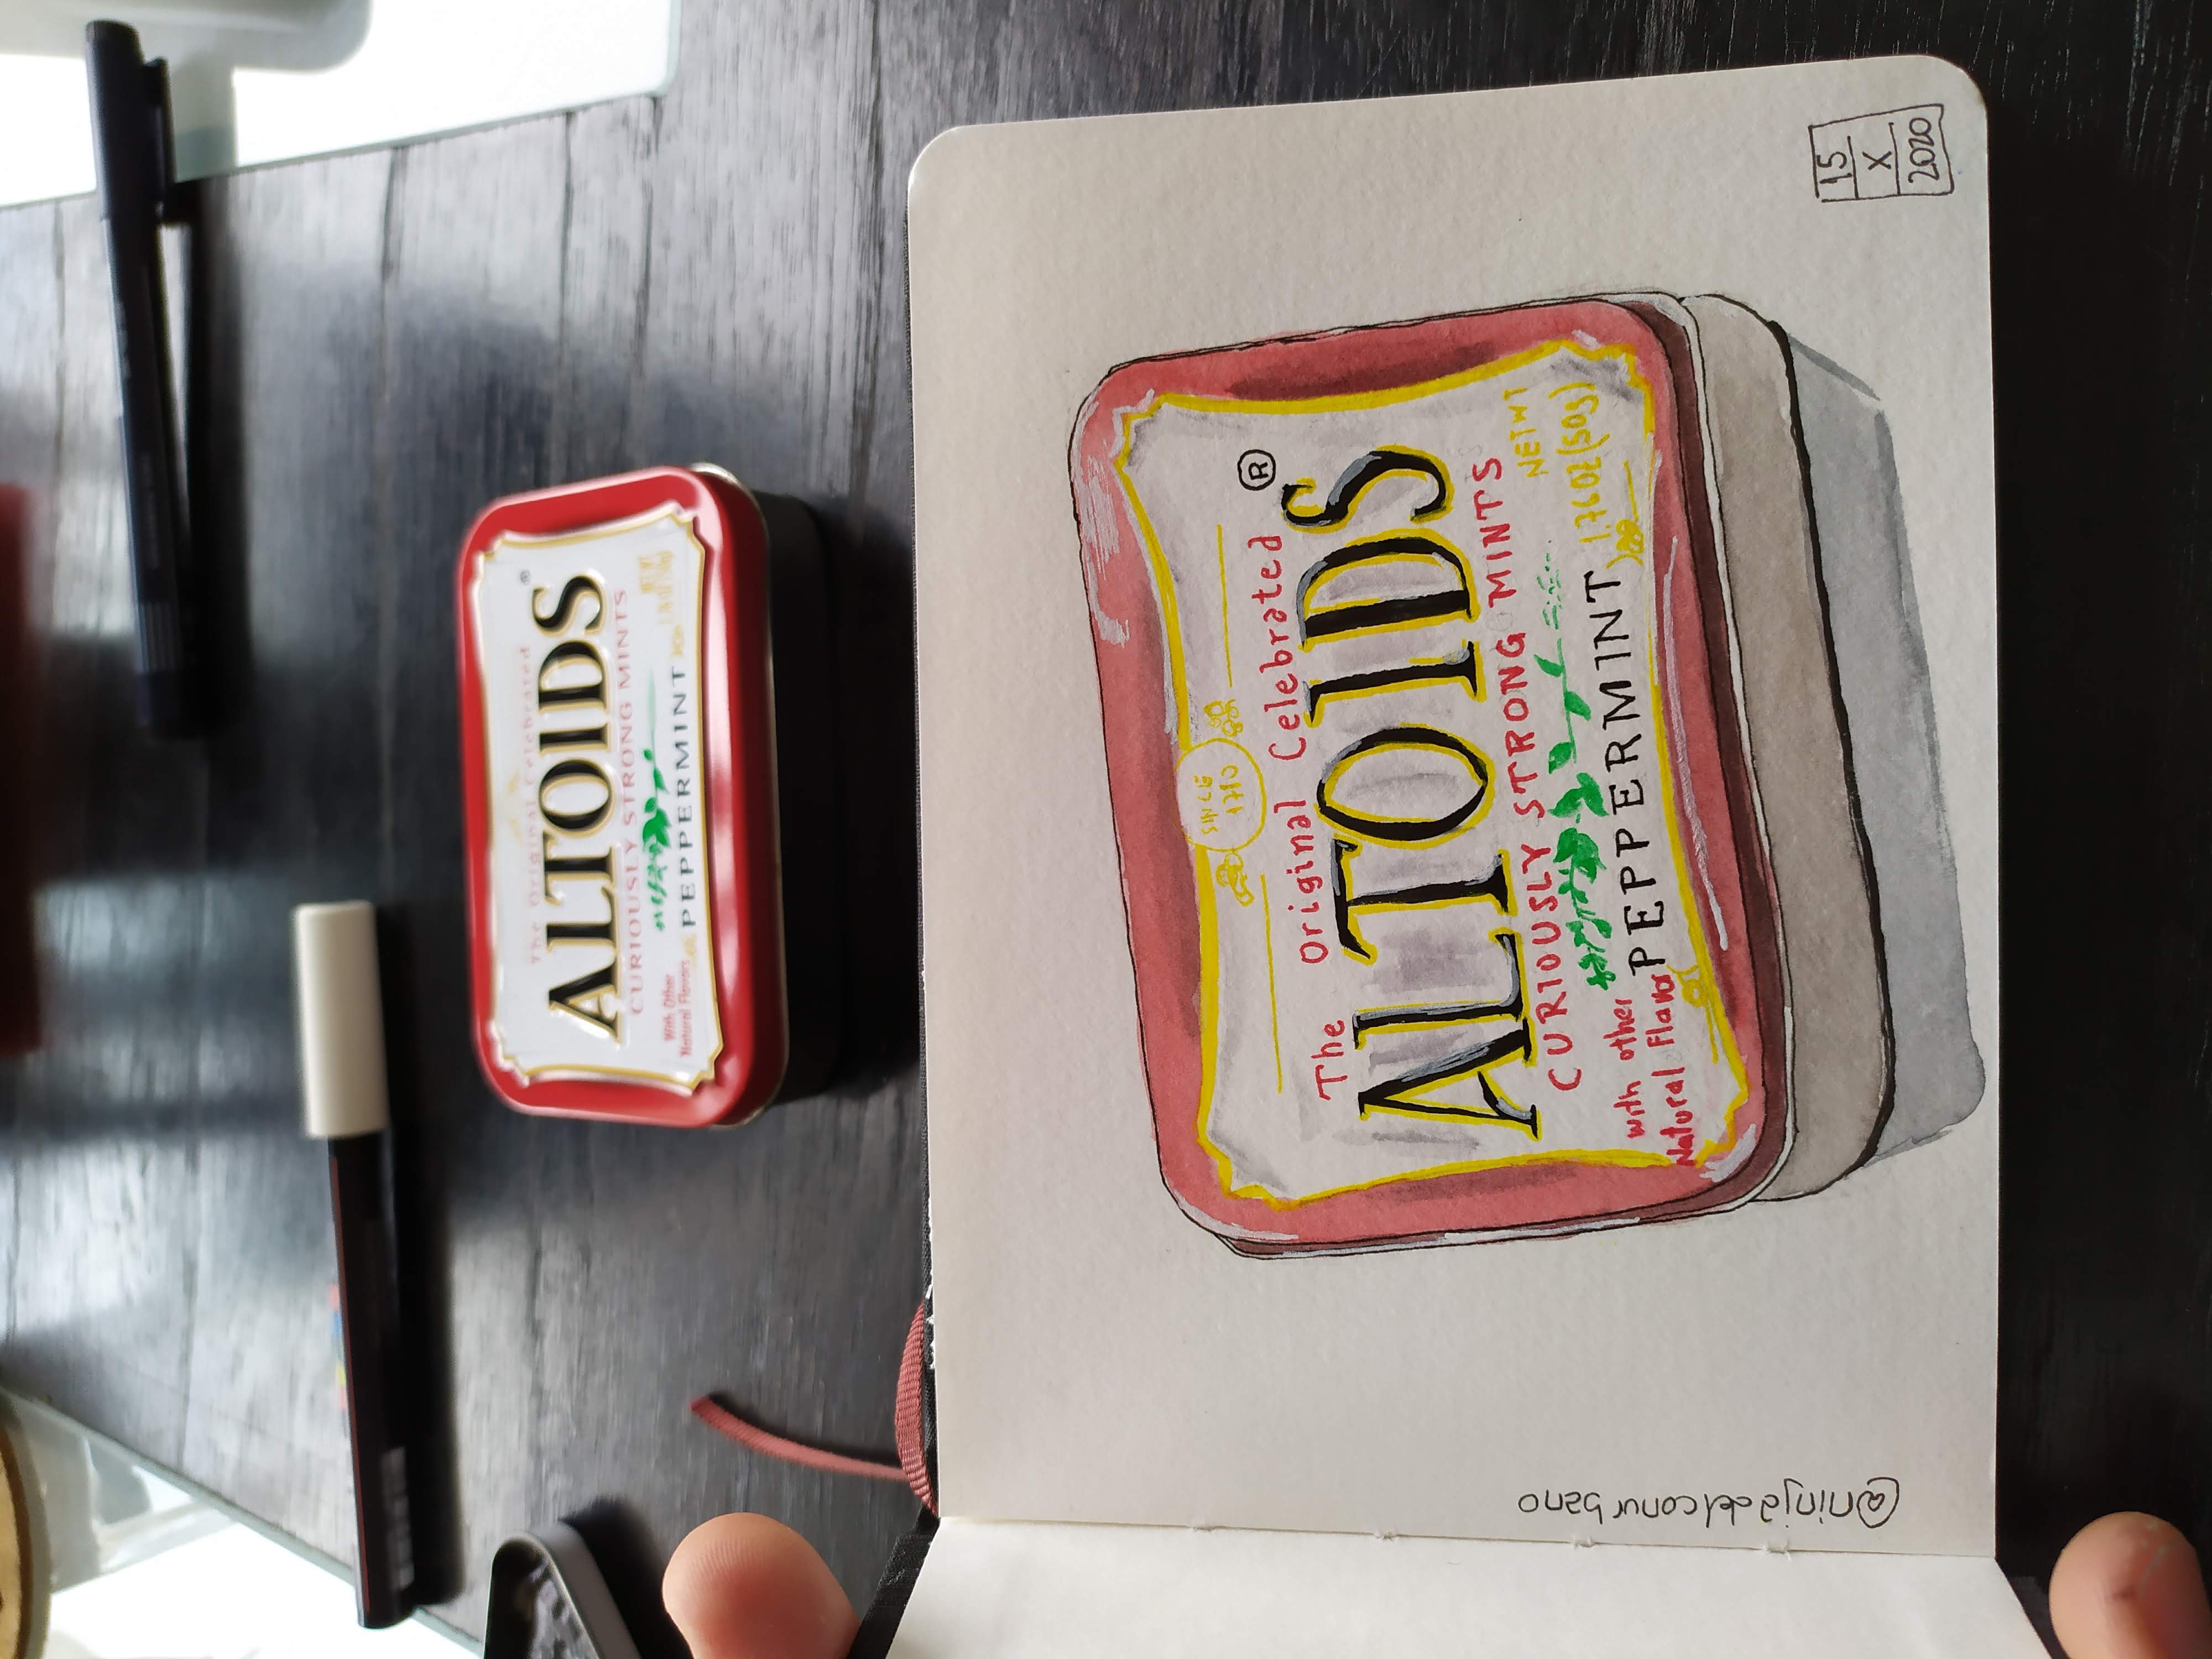 The Original Celebrated
ALTOIDS®
CURIOUSLY STRONG MINTS
With Other
Natural Flavors
PEPPERMINT
NET WT
1.76 OZ (50g)
SINCE
1780
The Original Celebrated
ALTOIDS ®
CURIOUSLY STRONG MINTS
NETWT
1.76 OZ (50g)
with other
Natural Flavor
PEPPERMINT
@ninjadelconurbano
15
X
2020